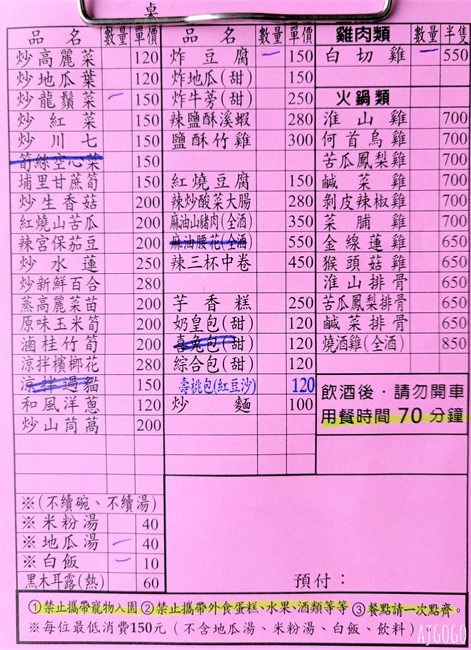 桌
品名 數量 單價 品名 數量 單價 雞肉類 數量 半隻
炒高麗菜 120 炸豆腐 一 150 白切雞 一 550
炒地瓜葉 120 炸地瓜(甜) 150
炒龍鬚菜 一 150 炸牛蒡(甜) 250 火鍋類
炒紅菜 150 辣鹽酥溪蝦 280 淮山雞 700
炒川七 150 鹽酥竹雞 300 何首烏雞 700
筍絲空心菜 150 苦瓜鳳梨雞 700
埔里甘蔗筍 150 紅燒豆腐 150 鹹菜雞 700
炒生香菇 200 辣炒酸菜大腸 280 剝皮辣椒雞 700
紅燒山苦瓜 200 麻油山豬肉(全酒) 350 菜脯雞 700
辣宮保茄豆 200 麻油腰花(全酒) 550 金線蓮雞 650
炒水蓮 250 辣三杯中卷 450 猴頭菇雞 650
炒新鮮百合 280 淮山排骨 650
蒸高麗菜苗 200 芋香糕 250 苦瓜鳳梨排骨 650
原味玉米筍 200 奶皇包(甜) 120 鹹菜排骨 650
滷桂竹筍 200 喜兔包(甜) 120 燒酒雞(全酒) 850
涼拌檳榔花 280 綜合包(甜) 120
涼拌過貓 150 壽桃包(紅豆沙) 120 飲酒後．請勿開車
和風洋蔥 120 炒麵 100 用餐時間 70 分鐘
炒山茼萵 200
※(不續碗、不續湯)
※米粉湯 40
※地瓜湯 一 40
※白飯 一 10
黑木耳露(熱) 60 預付：
①禁止攜帶寵物入園 ②禁止攜帶外食蛋糕、水果、酒類等等 ③餐點請一次點齊。
※每位最低消費150元（不含地瓜湯、米粉湯、白飯、飲料）
AJGOGO